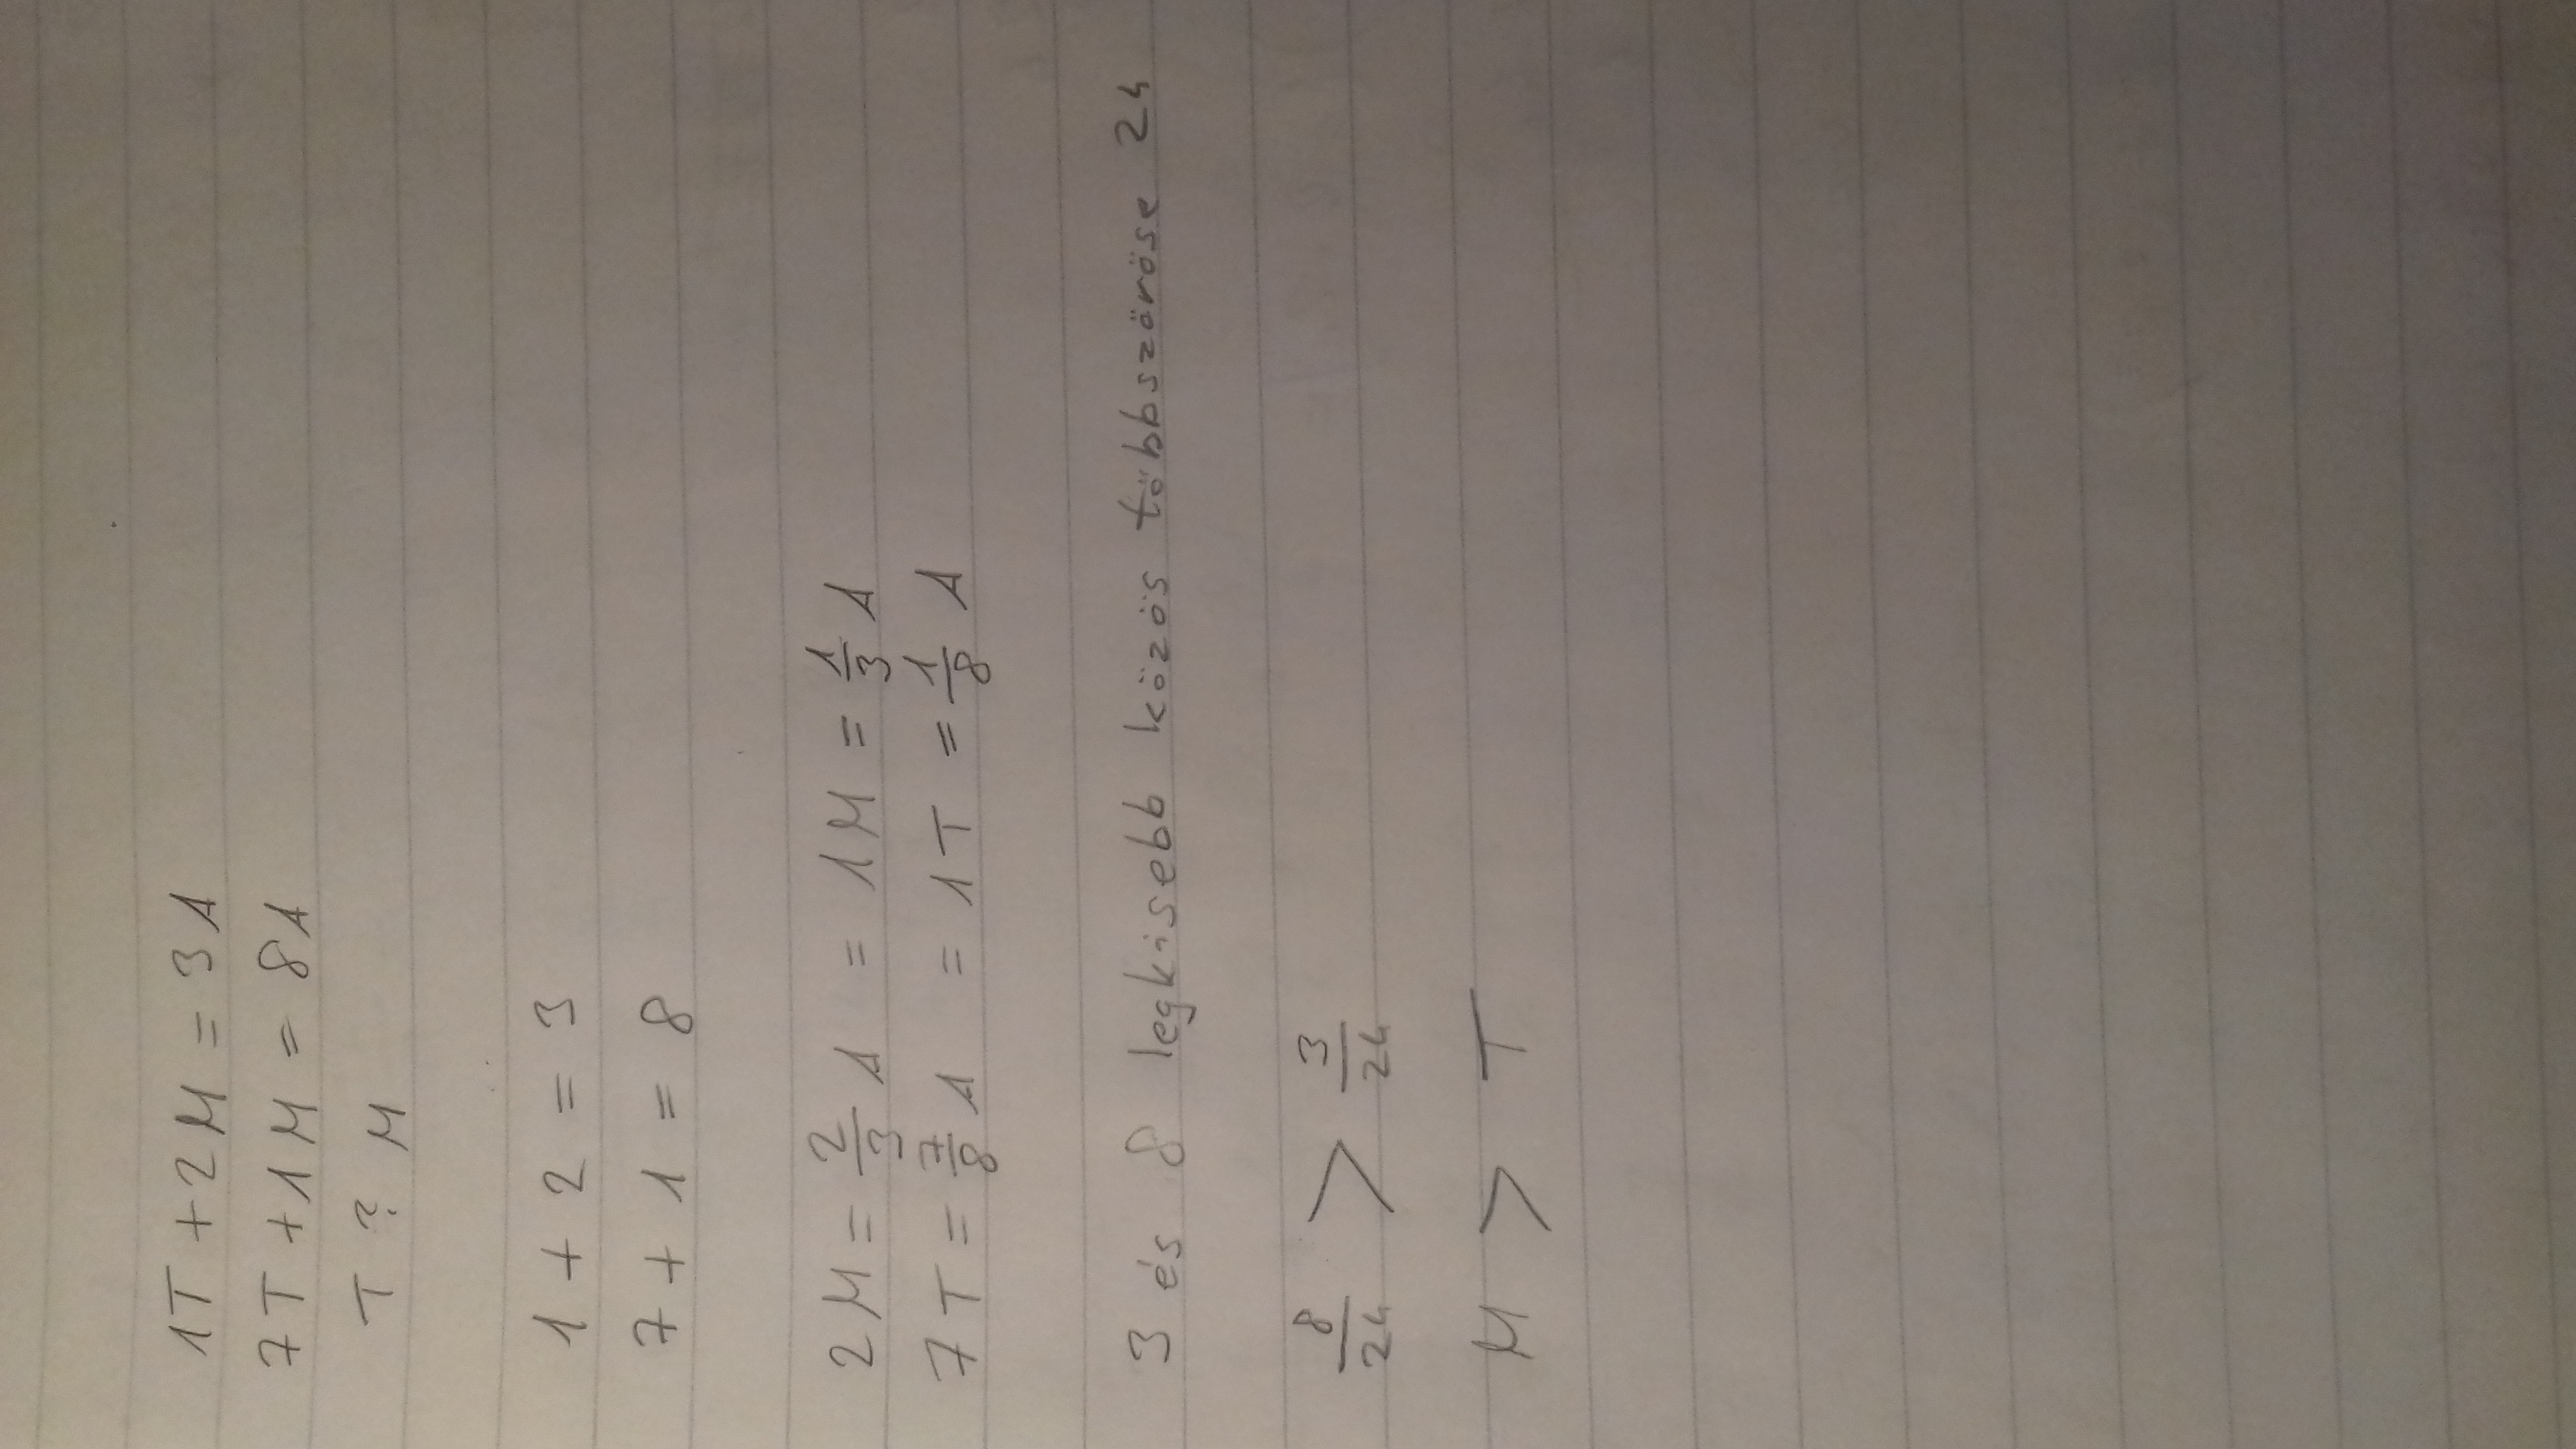 1T + 2M = 3A
7T + 1M = 8A
T ? M
1 + 2 = 3
7 + 1 = 8
2M = 2/3 A = 1M = 1/3 A
7T = 7/8 A = 1T = 1/8 A
3 és 8 legkisebb közös többszöröse 24
8/24 > 3/24
M > T